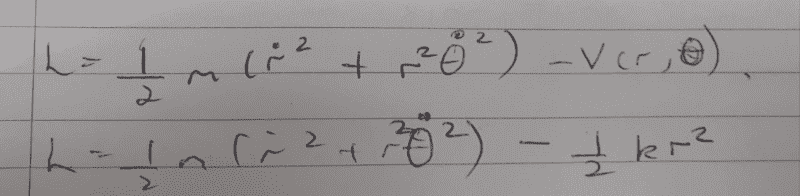 L = 1/2 m (ṙ² + r²θ̇²) - V(r, θ).
L = 1/2 m (ṙ² + r²θ̈²) - 1/2 kr²